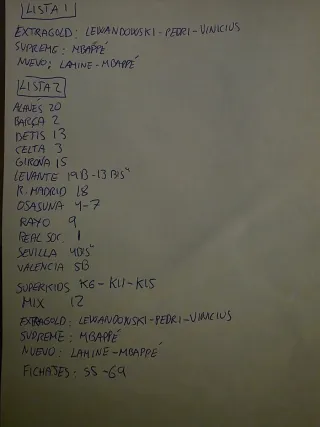 LISTA 1
EXTRAGOLD: LEWANDOWSKI-PEDRI-VINICIUS
SUPREME: MBAPPÉ
NUEVO: LAMINE-MBAPPÉ
LISTA 2
ALAVÉS 20
BARÇA 2
BETIS 13
CELTA 3
GIRONA 15
LEVANTE 19B-13BIS"
R. MADRID 18
OSASUNA 4-7
RAYO 9
REAL SOC. 1
SEVILLA 4BIS"
VALENCIA 5B
SUPERKIDS K6-K11-K15
MIX 12
EXTRAGOLD: LEWANDOWSKI-PEDRI-VINICIUS
SUPREME: MBAPPÉ
NUEVO: LAMINE-MBAPPÉ
FICHAJES: 55-69